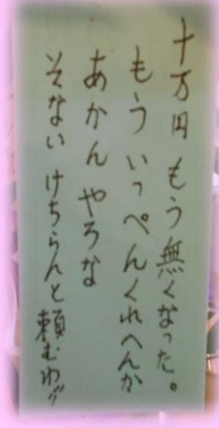 十万円 もう無くなった。
もう いっぺんくれへんか
あかん やろな
そない けちらんと頼むわ〃